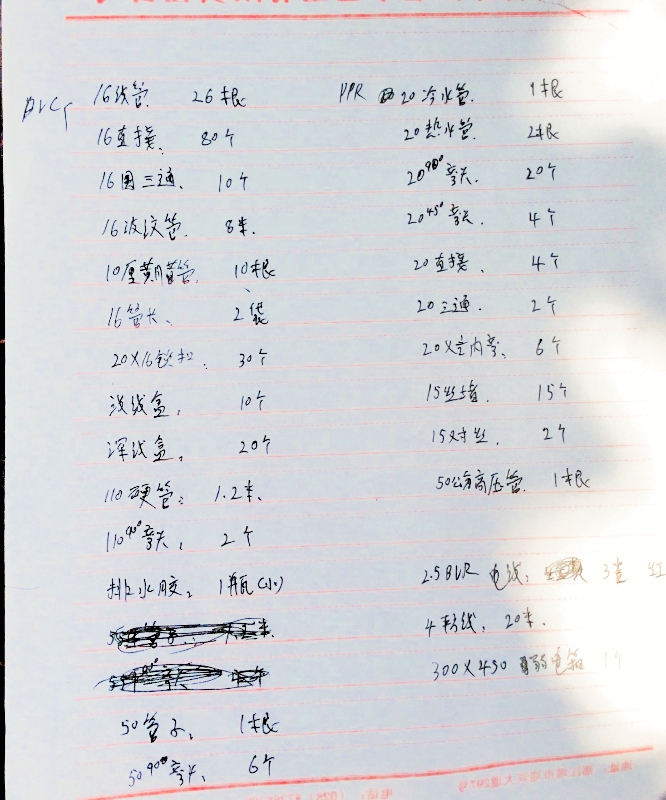 PVC
16线管 26根
16直接、 80个
16圆三通、 10个
16波纹管 8米.
10厘黄腊管, 10根
16管卡、 2袋
20X16锁扣, 30个
浅线盒, 10个
深线盒, 20个
110硬管: 1.2米,
110 90° 弯头, 2个
排水胶, 1瓶(小)
50管子, 1根
50 90° 弯头, 6个
PPR 20冷水管 1根
20热水管. 2根
20 90° 弯头. 20个
20 45° 弯头. 4个
20直接、 4个
20三通. 2个
20X 内弯, 6个
15丝堵. 15个
15对丝. 2个
50公分高压管. 1根
2.5BVR 电线, 3 红
4平方线, 20米.
300X450 弱电箱 1个